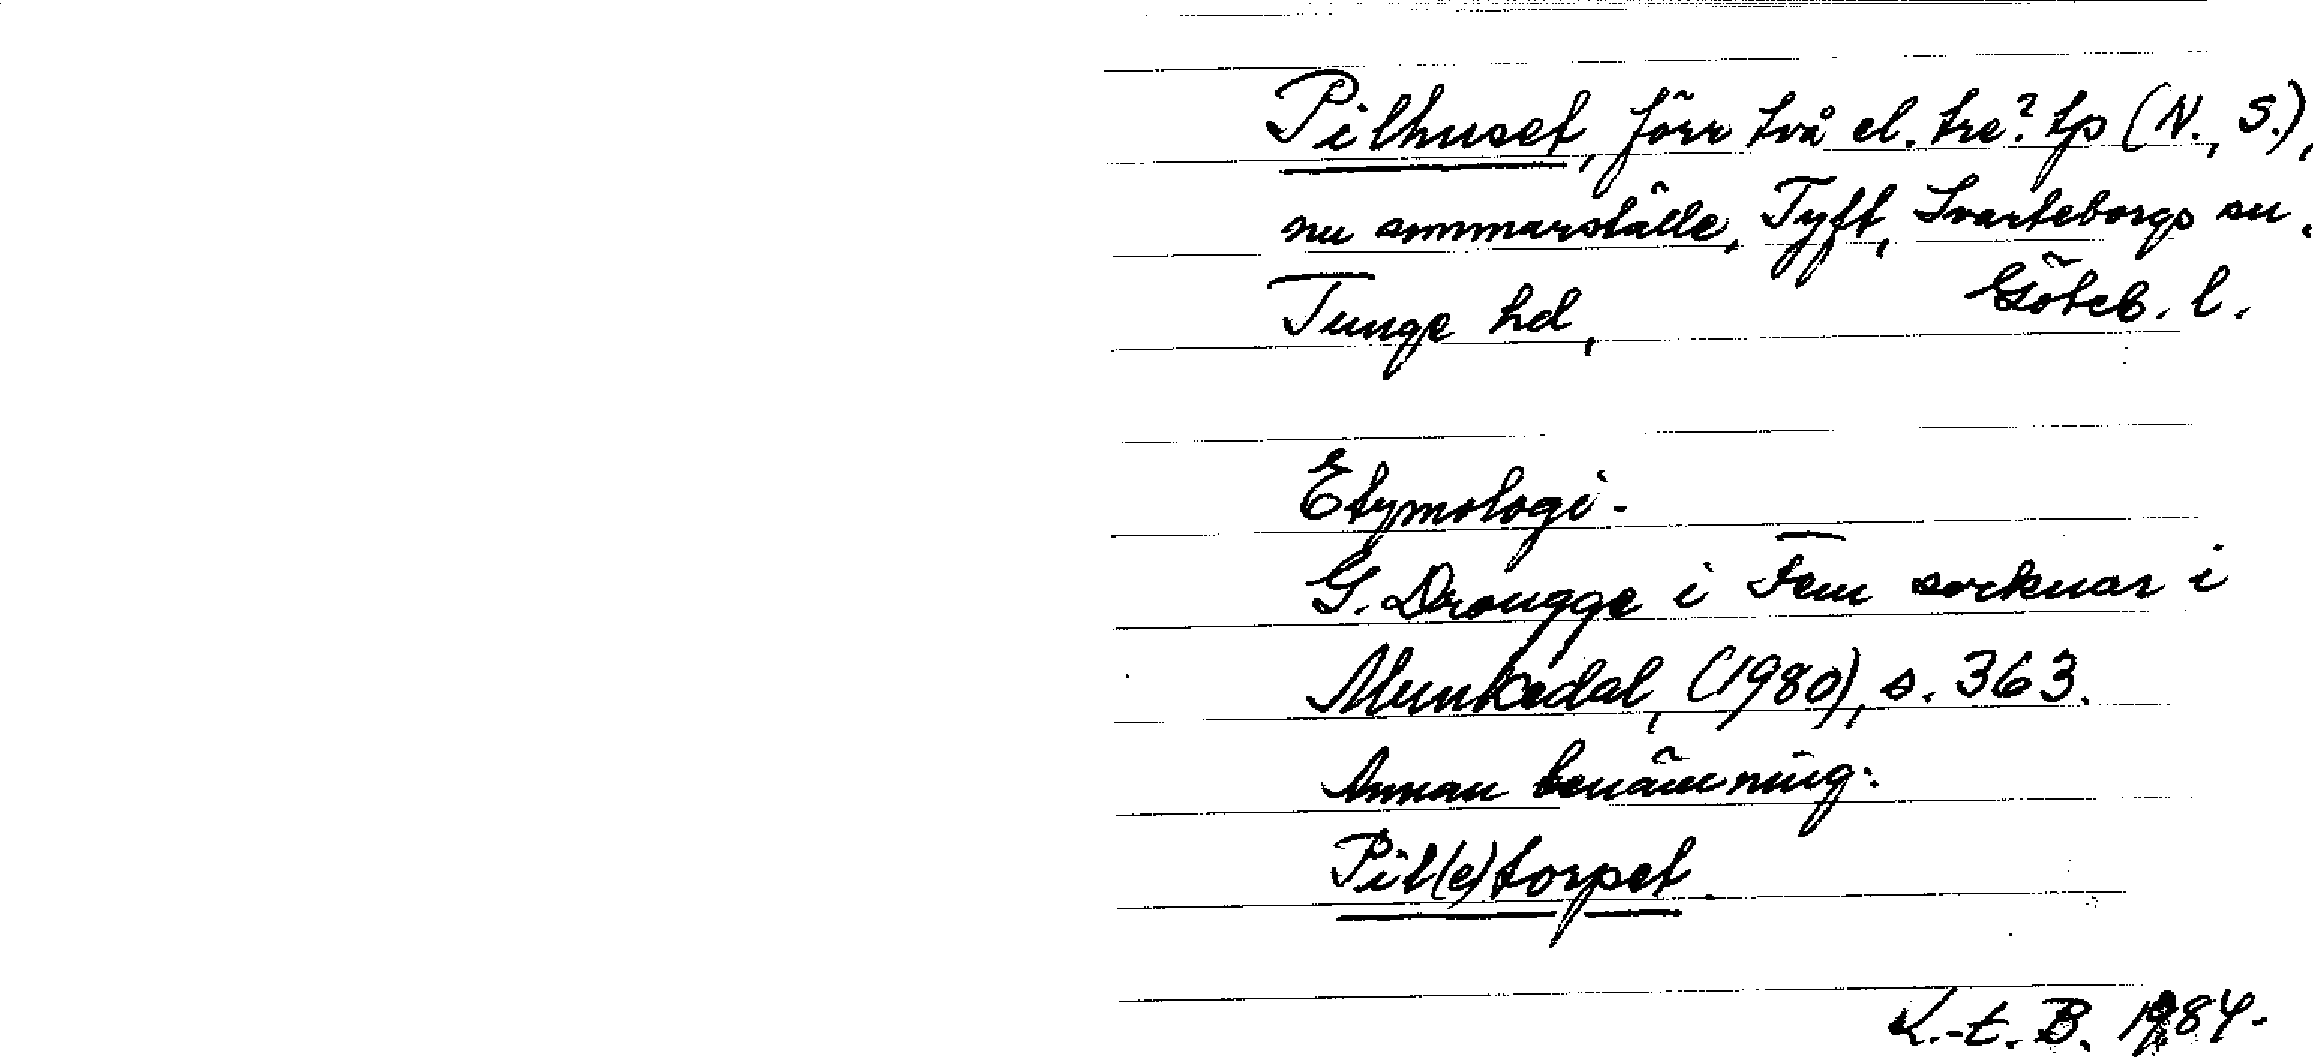 Pilhuset, förr två el. tre? tp (N., S.),
nu sommarställe, Tyft, Svarteborgs sn.
Tunge hd, Göteb. l.
Etymologi.
G. Drougge i Fem socknar i
Munkedal, (1980), s. 363.
Annan benämning:
Pil(e)torpet
K.-E. B. 1984.